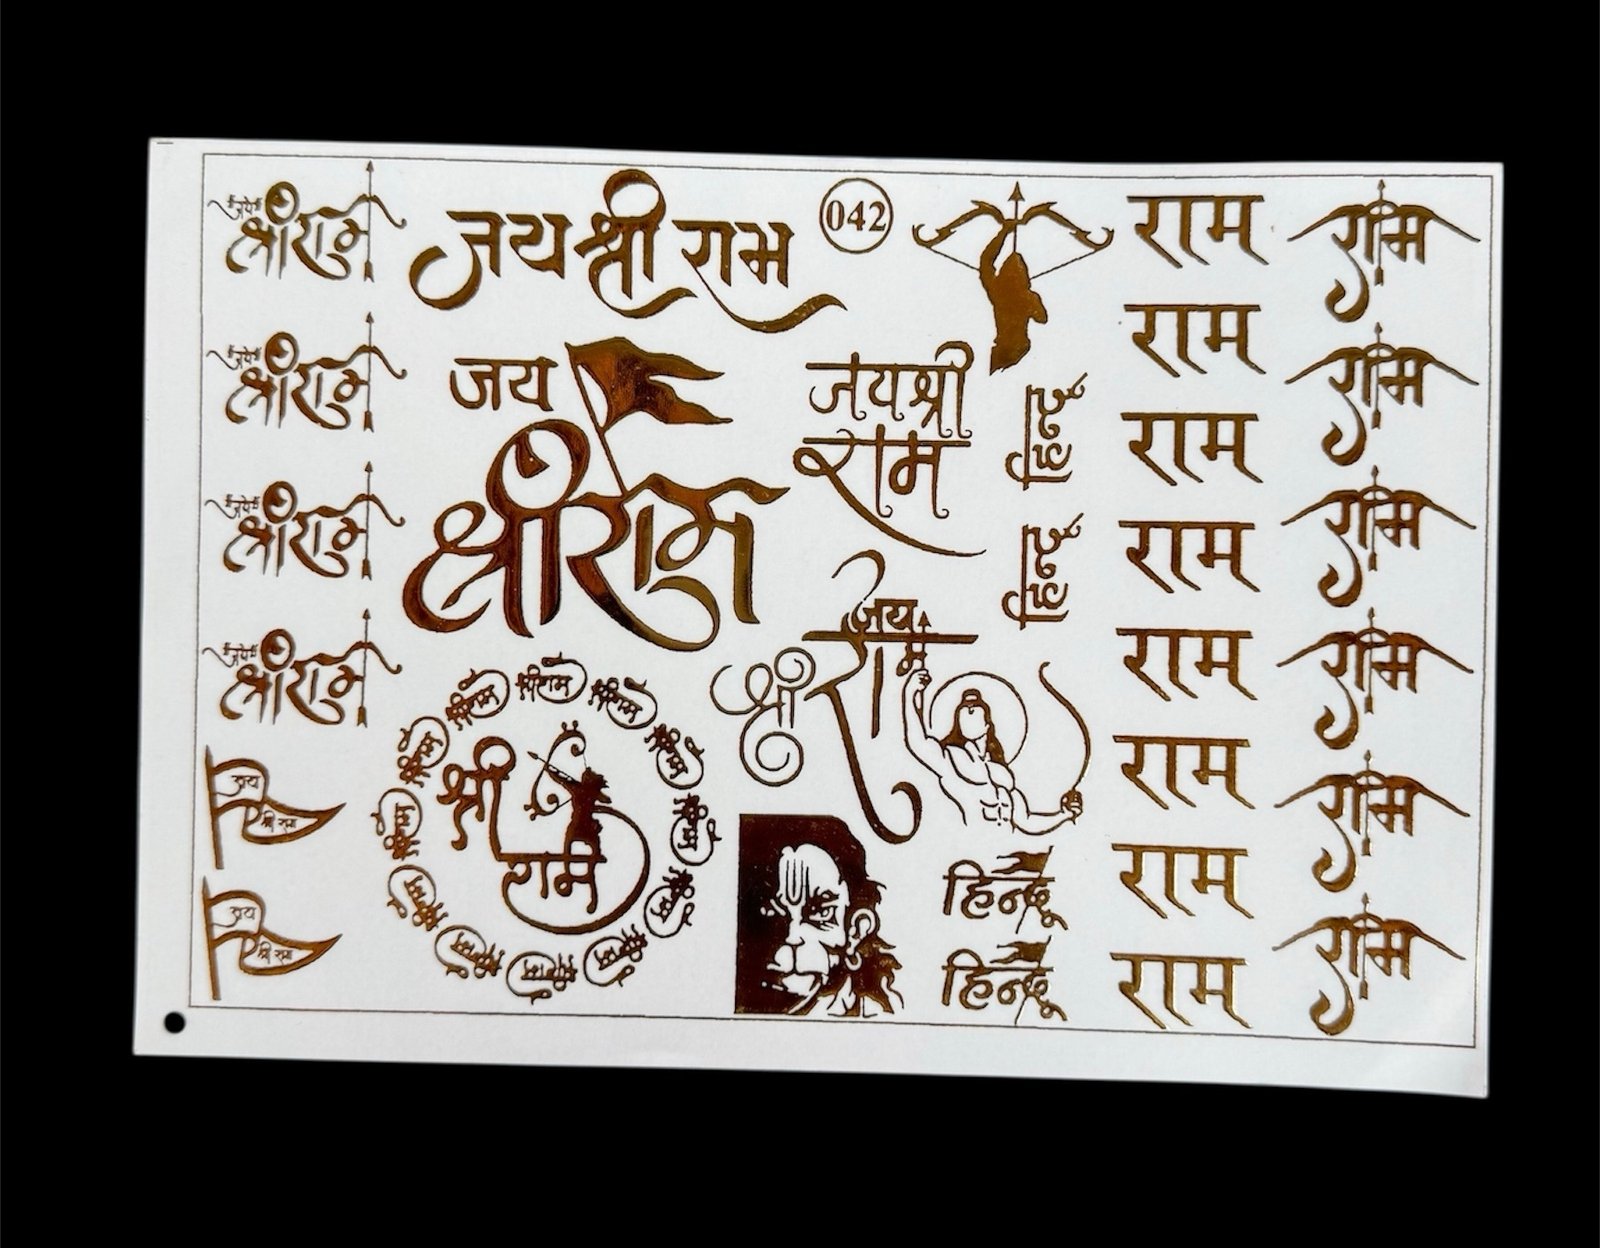 जय
श्रीराम
जय
श्रीराम
जय
श्रीराम
जय
श्रीराम
जय
श्री राम
जय
श्री राम
जय श्री राम
042
जय
श्रीराम
जय श्री
राम
हिन्दू
हिन्दू
जय
श्री राम
श्री
राम
श्रीराम
श्रीराम
श्रीराम
श्रीराम
श्रीराम
श्रीराम
श्रीराम
श्रीराम
श्रीराम
श्रीराम
श्रीराम
श्रीराम
हिन्दू
हिन्दू
राम
राम
राम
राम
राम
राम
राम
राम
राम
राम
राम
राम
राम
राम